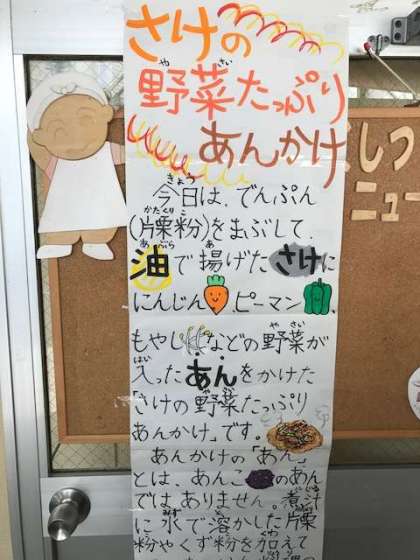 さけの
野菜たっぷり
あんかけ
今日は、でんぷん
(片栗粉)をまぶして、
油で揚げたさけに
にんじん、ピーマン、
もやしなどの野菜が
入ったあんをかけた
さけの野菜たっぷり
あんかけ」です。
あんかけの「あん」
とは、あんこのあん
ではありません。煮汁
に水で溶かした片栗
粉やくず粉を加えて
しつ
ニュー